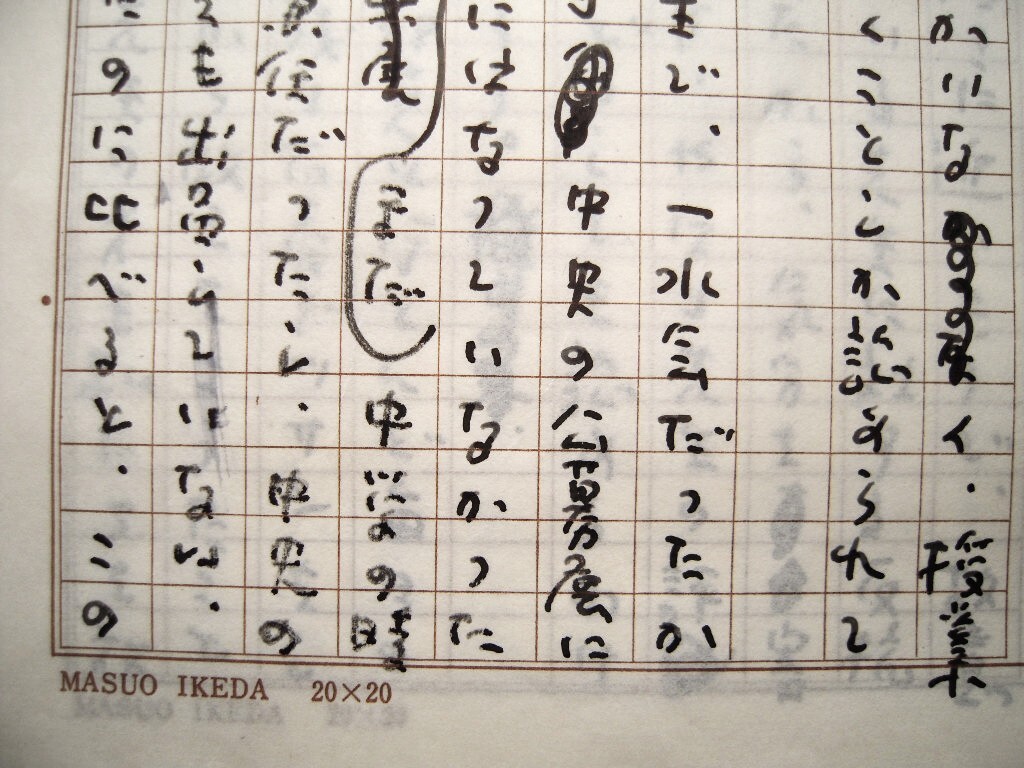 かいな く、授業
くことしか認められて
で、一水会だったか
中央の公募展に
にはなっていなかった
まだ中学の時
在だったし、中央の
も出品していない、
のに比べると、この
MASUO IKEDA 20×20